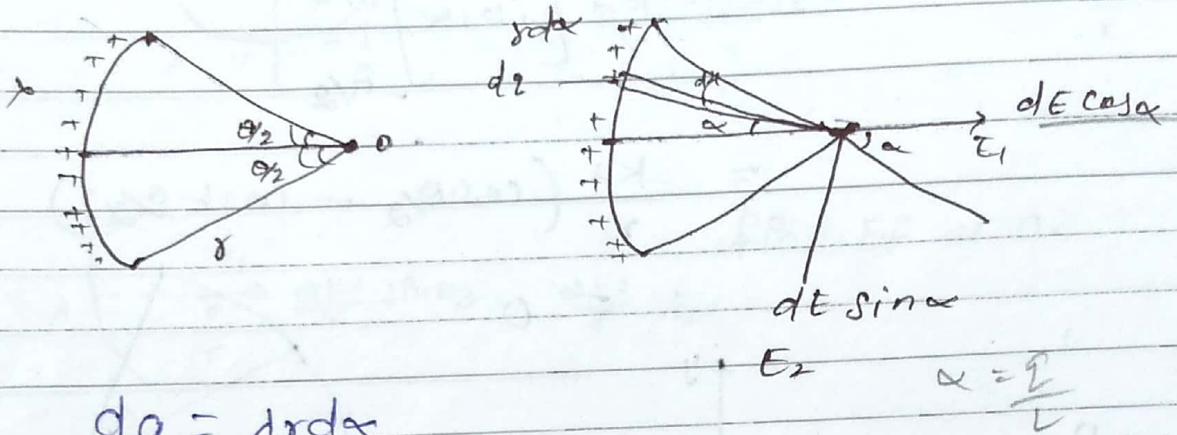 λ
θ/2
θ/2
O
r
rdα
dq
dα
α
dE cosα
E₁
α
dE sinα
E₂
α = q/L
dq = λrdα